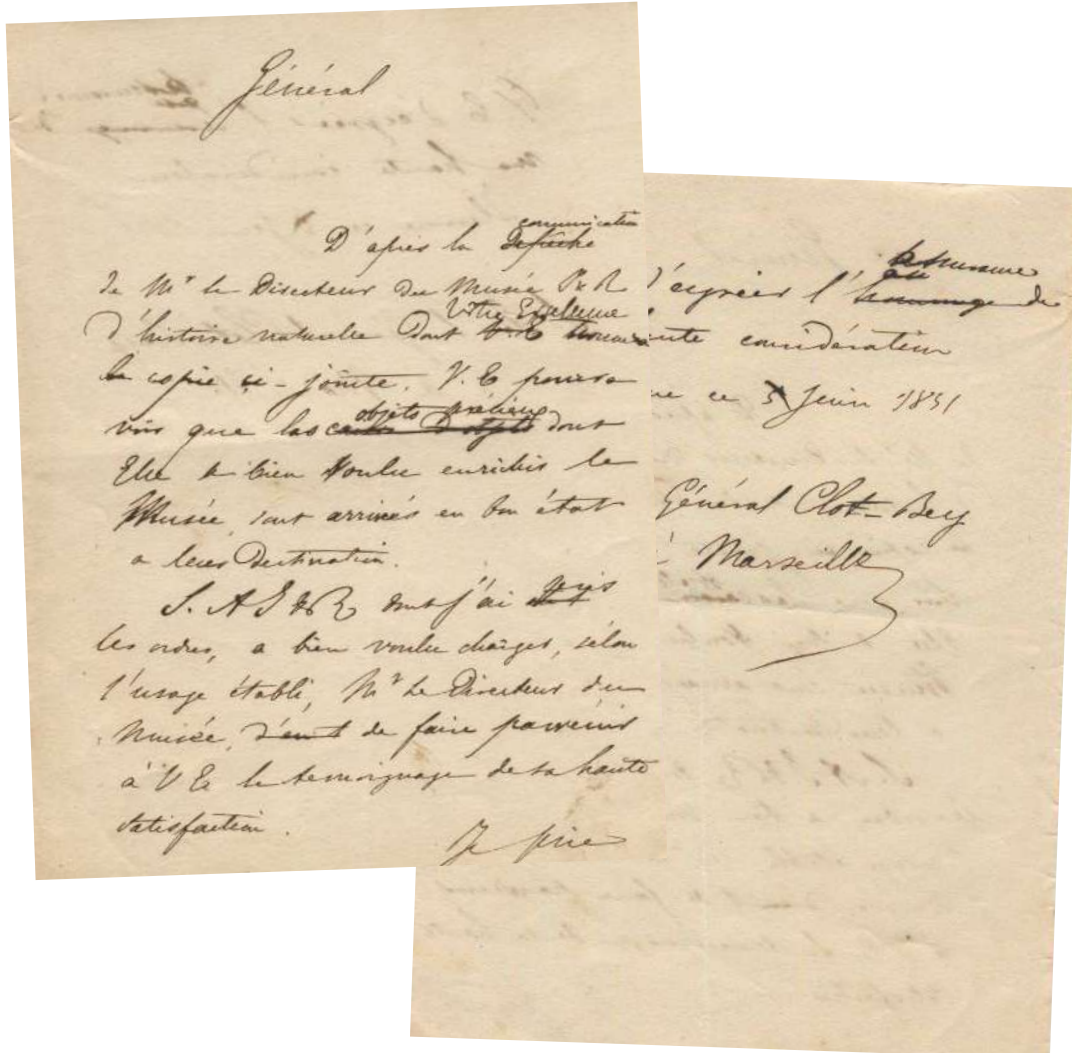 Général
D'après la Depêche communication
de Mr le Directeur du Musée I & R
d'histoire naturelle dont V. E. Votre Excellence trouvera
la copie ci-jointe. V. E pourra
voir que les caisses d'objets objets précieux dont
Elle a bien voulu enrichir le
Musée, sont arrivés en bon état
a leur destination.
S. A I & R dont j'ai pris
les ordres, a bien voulu charger, selon
l'usage établi, Mr le Directeur du
Musée, de faire parvenir
à V E le temoignage de sa haute
satisfaction.
Je prie
d'agréer l'hommage de
considération
ce 5 Juin 1851
Général Clot-Bey
à Marseille